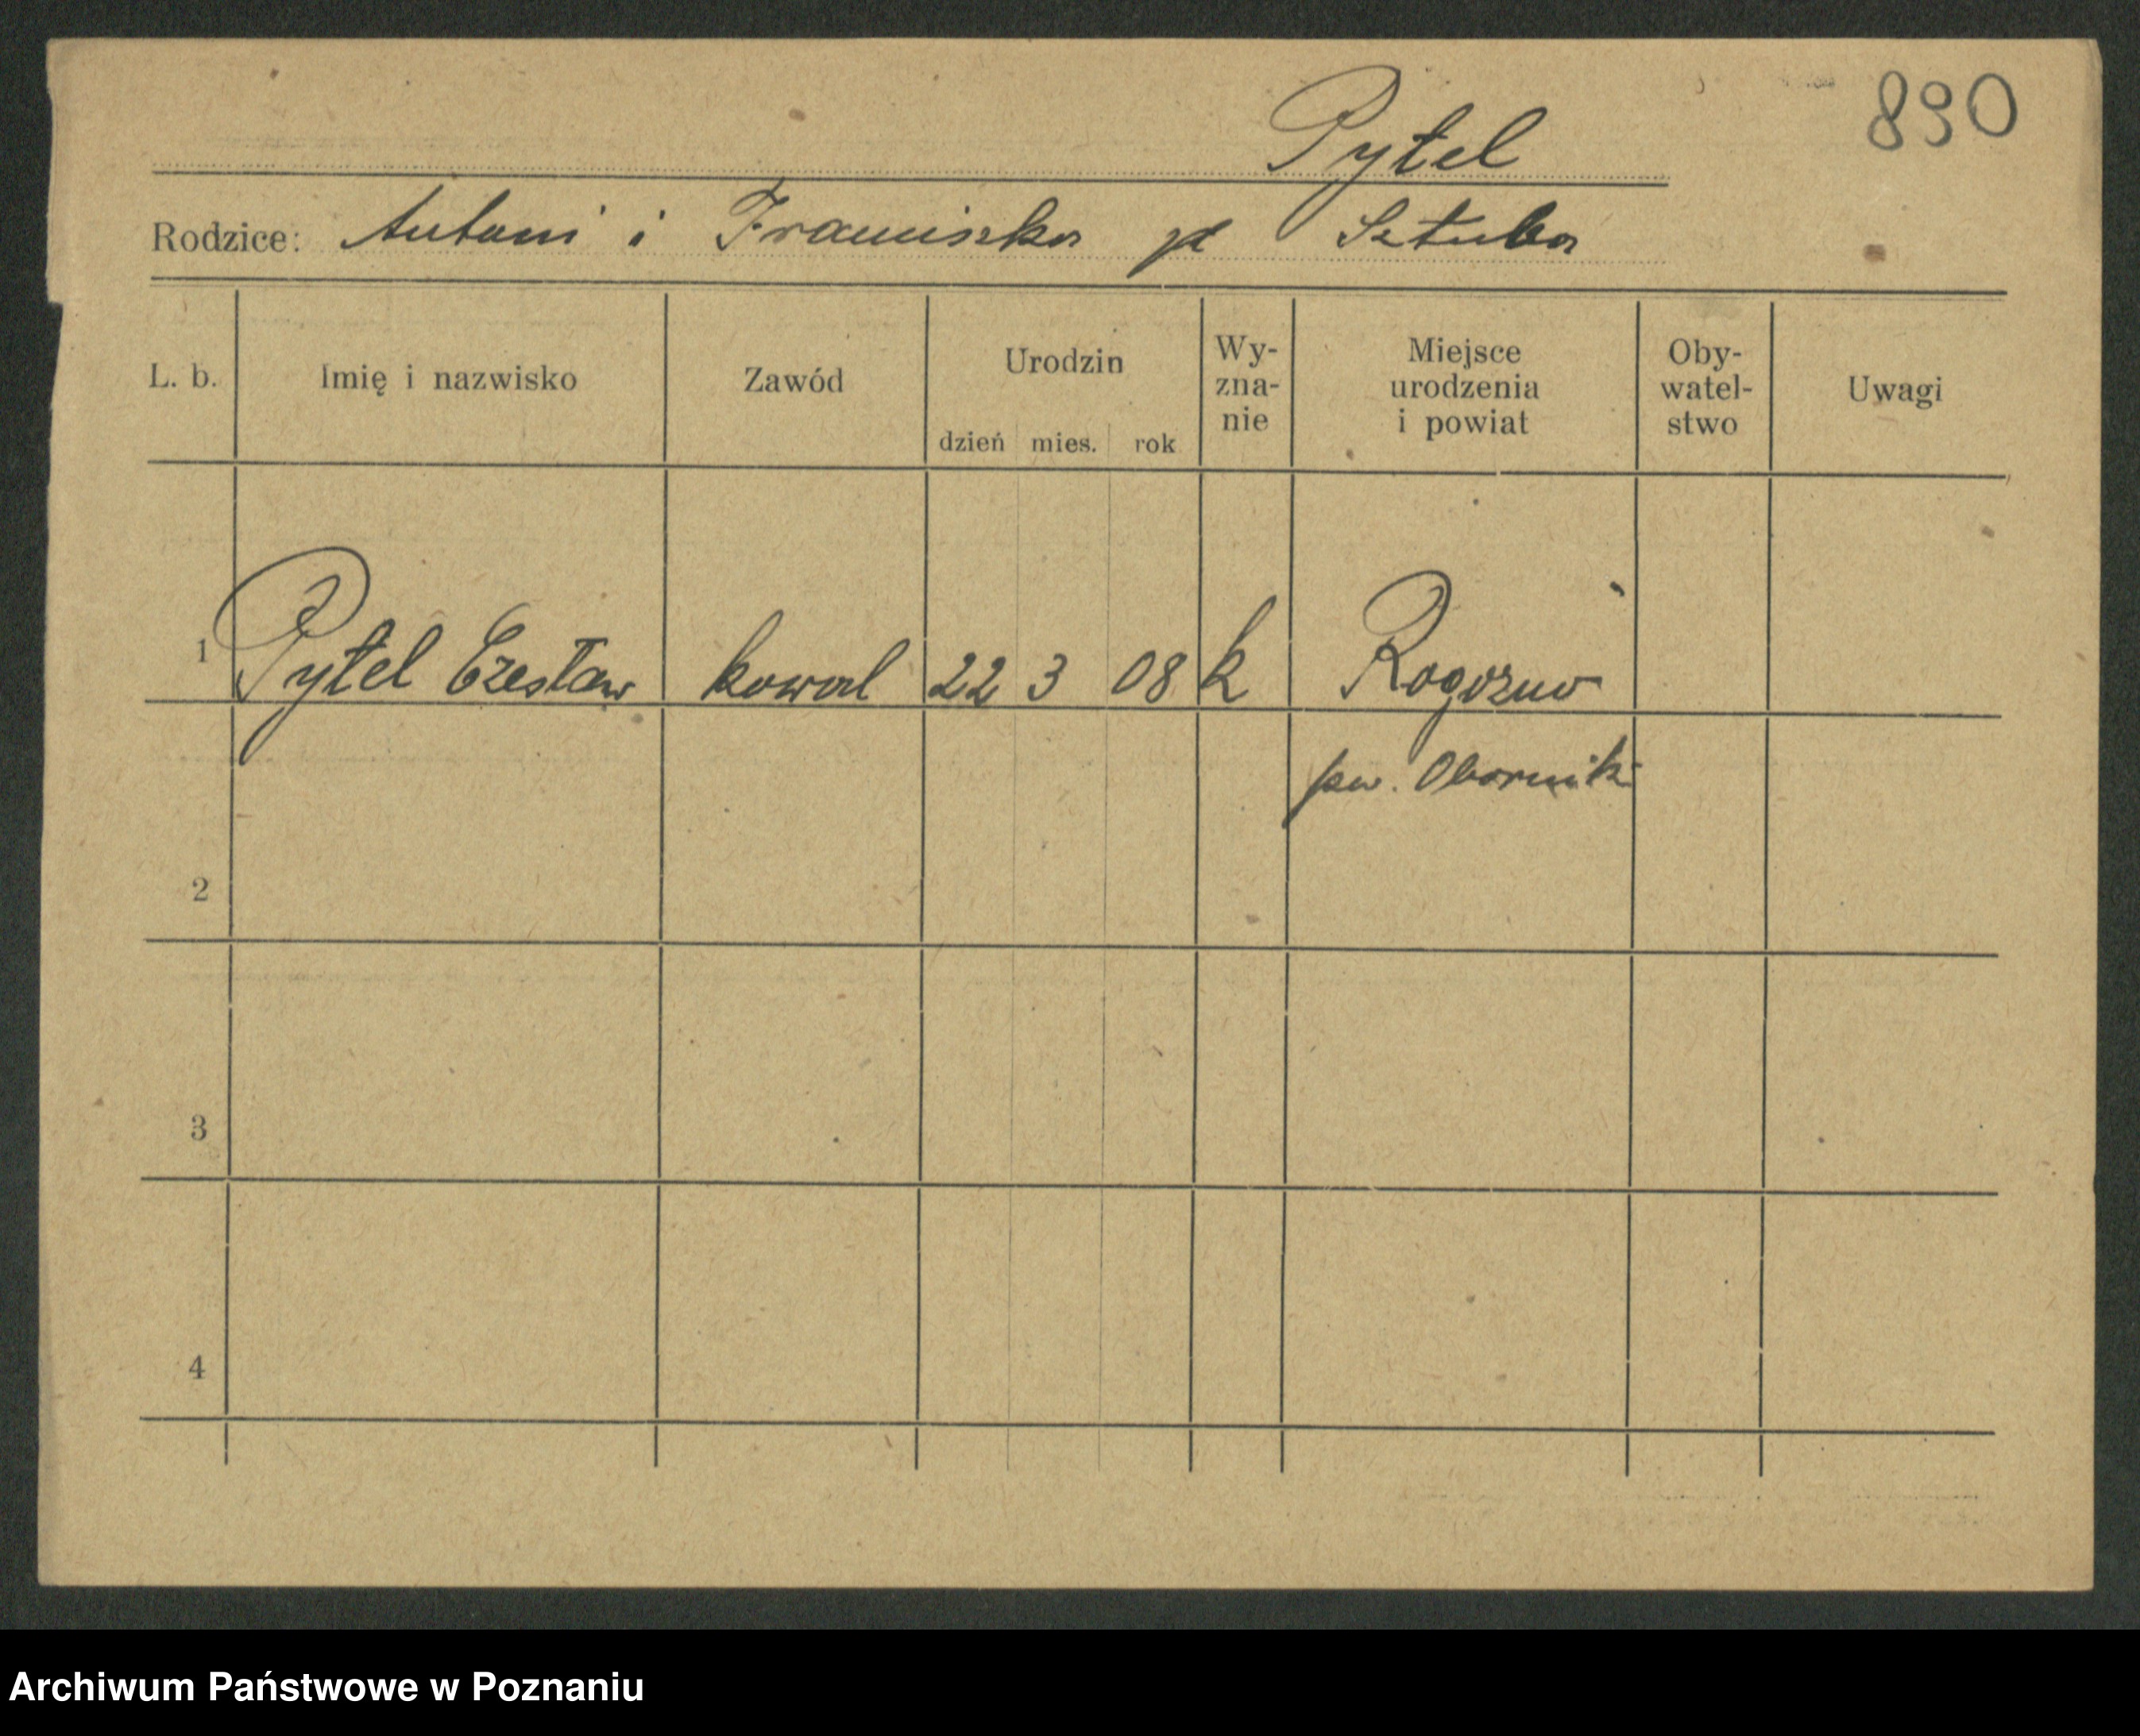 890
Pytel
Rodzice: Antoni i Franciszka zd Sztuba
L. b. Imię i nazwisko Zawód Urodzin dzień mies. rok Wy-zna-nie Miejsce urodzenia i powiat Oby-watel-stwo Uwagi
1 Pytel Czesław kowal 22 3 08 k Rogoźno
pw. Oborniki
2
3
4
Archiwum Państwowe w Poznaniu